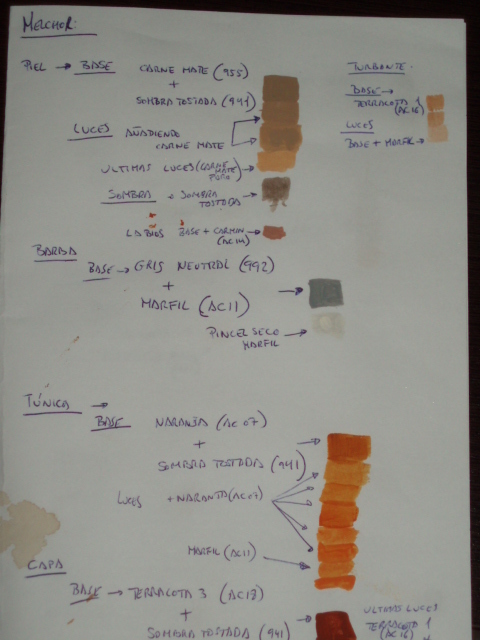 MELCHOR:
PIEL → BASE CARNE MATE (955)
+
SOMBRA TOSTADA (941)
LUCES AÑADIENDO
CARNE MATE
ULTIMAS LUCES (CARNE MATE
PURO)
SOMBRA + SOMBRA
TOSTADA
LABIOS BASE + CARMIN
(AC14)
TURBANTE
BASE →
TERRACOTA 1
(AC16)
LUCES
BASE + MARFIL →
BARBA
BASE → GRIS NEUTRAL (992)
+
MARFIL (AC11)
PINCEL SECO
MARFIL
TÚNICA →
BASE NARANJA (AC07)
+
SOMBRA TOSTADA (941)
LUCES + NARANJA (AC07)
MARFIL (AC11)
CAPA
BASE → TERRACOTA 3 (AC18)
+
SOMBRA TOSTADA (941)
ULTIMAS LUCES
TERRACOTA 1
(AC16)